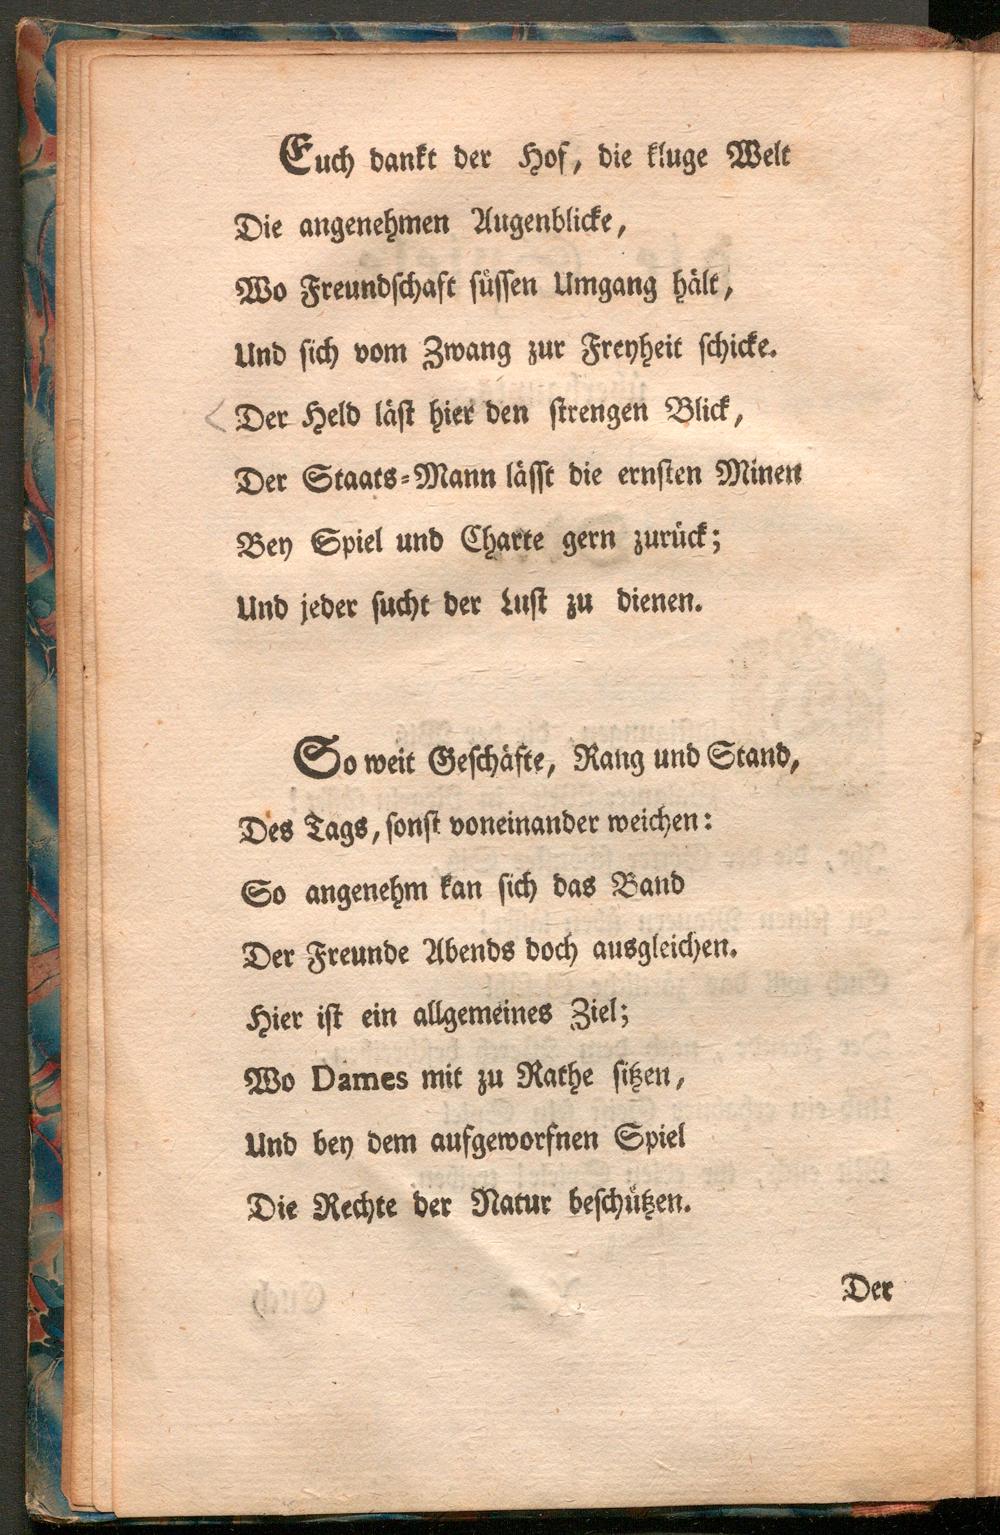 Euch dankt der Hof, die kluge Welt
Die angenehmen Augenblicke,
Wo Freundschaft süssen Umgang hält,
Und sich vom Zwang zur Freyheit schicke.
Der Held läst hier den strengen Blick,
Der Staats-Mann lässt die ernsten Minen
Bey Spiel und Charte gern zurück;
Und jeder sucht der Lust zu dienen.
So weit Geschäfte, Rang und Stand,
Des Tags, sonst voneinander weichen:
So angenehm kan sich das Band
Der Freunde Abends doch ausgleichen.
Hier ist ein allgemeines Ziel;
Wo Dames mit zu Rathe sitzen,
Und bey dem aufgeworfnen Spiel
Die Rechte der Natur beschützen.
Der